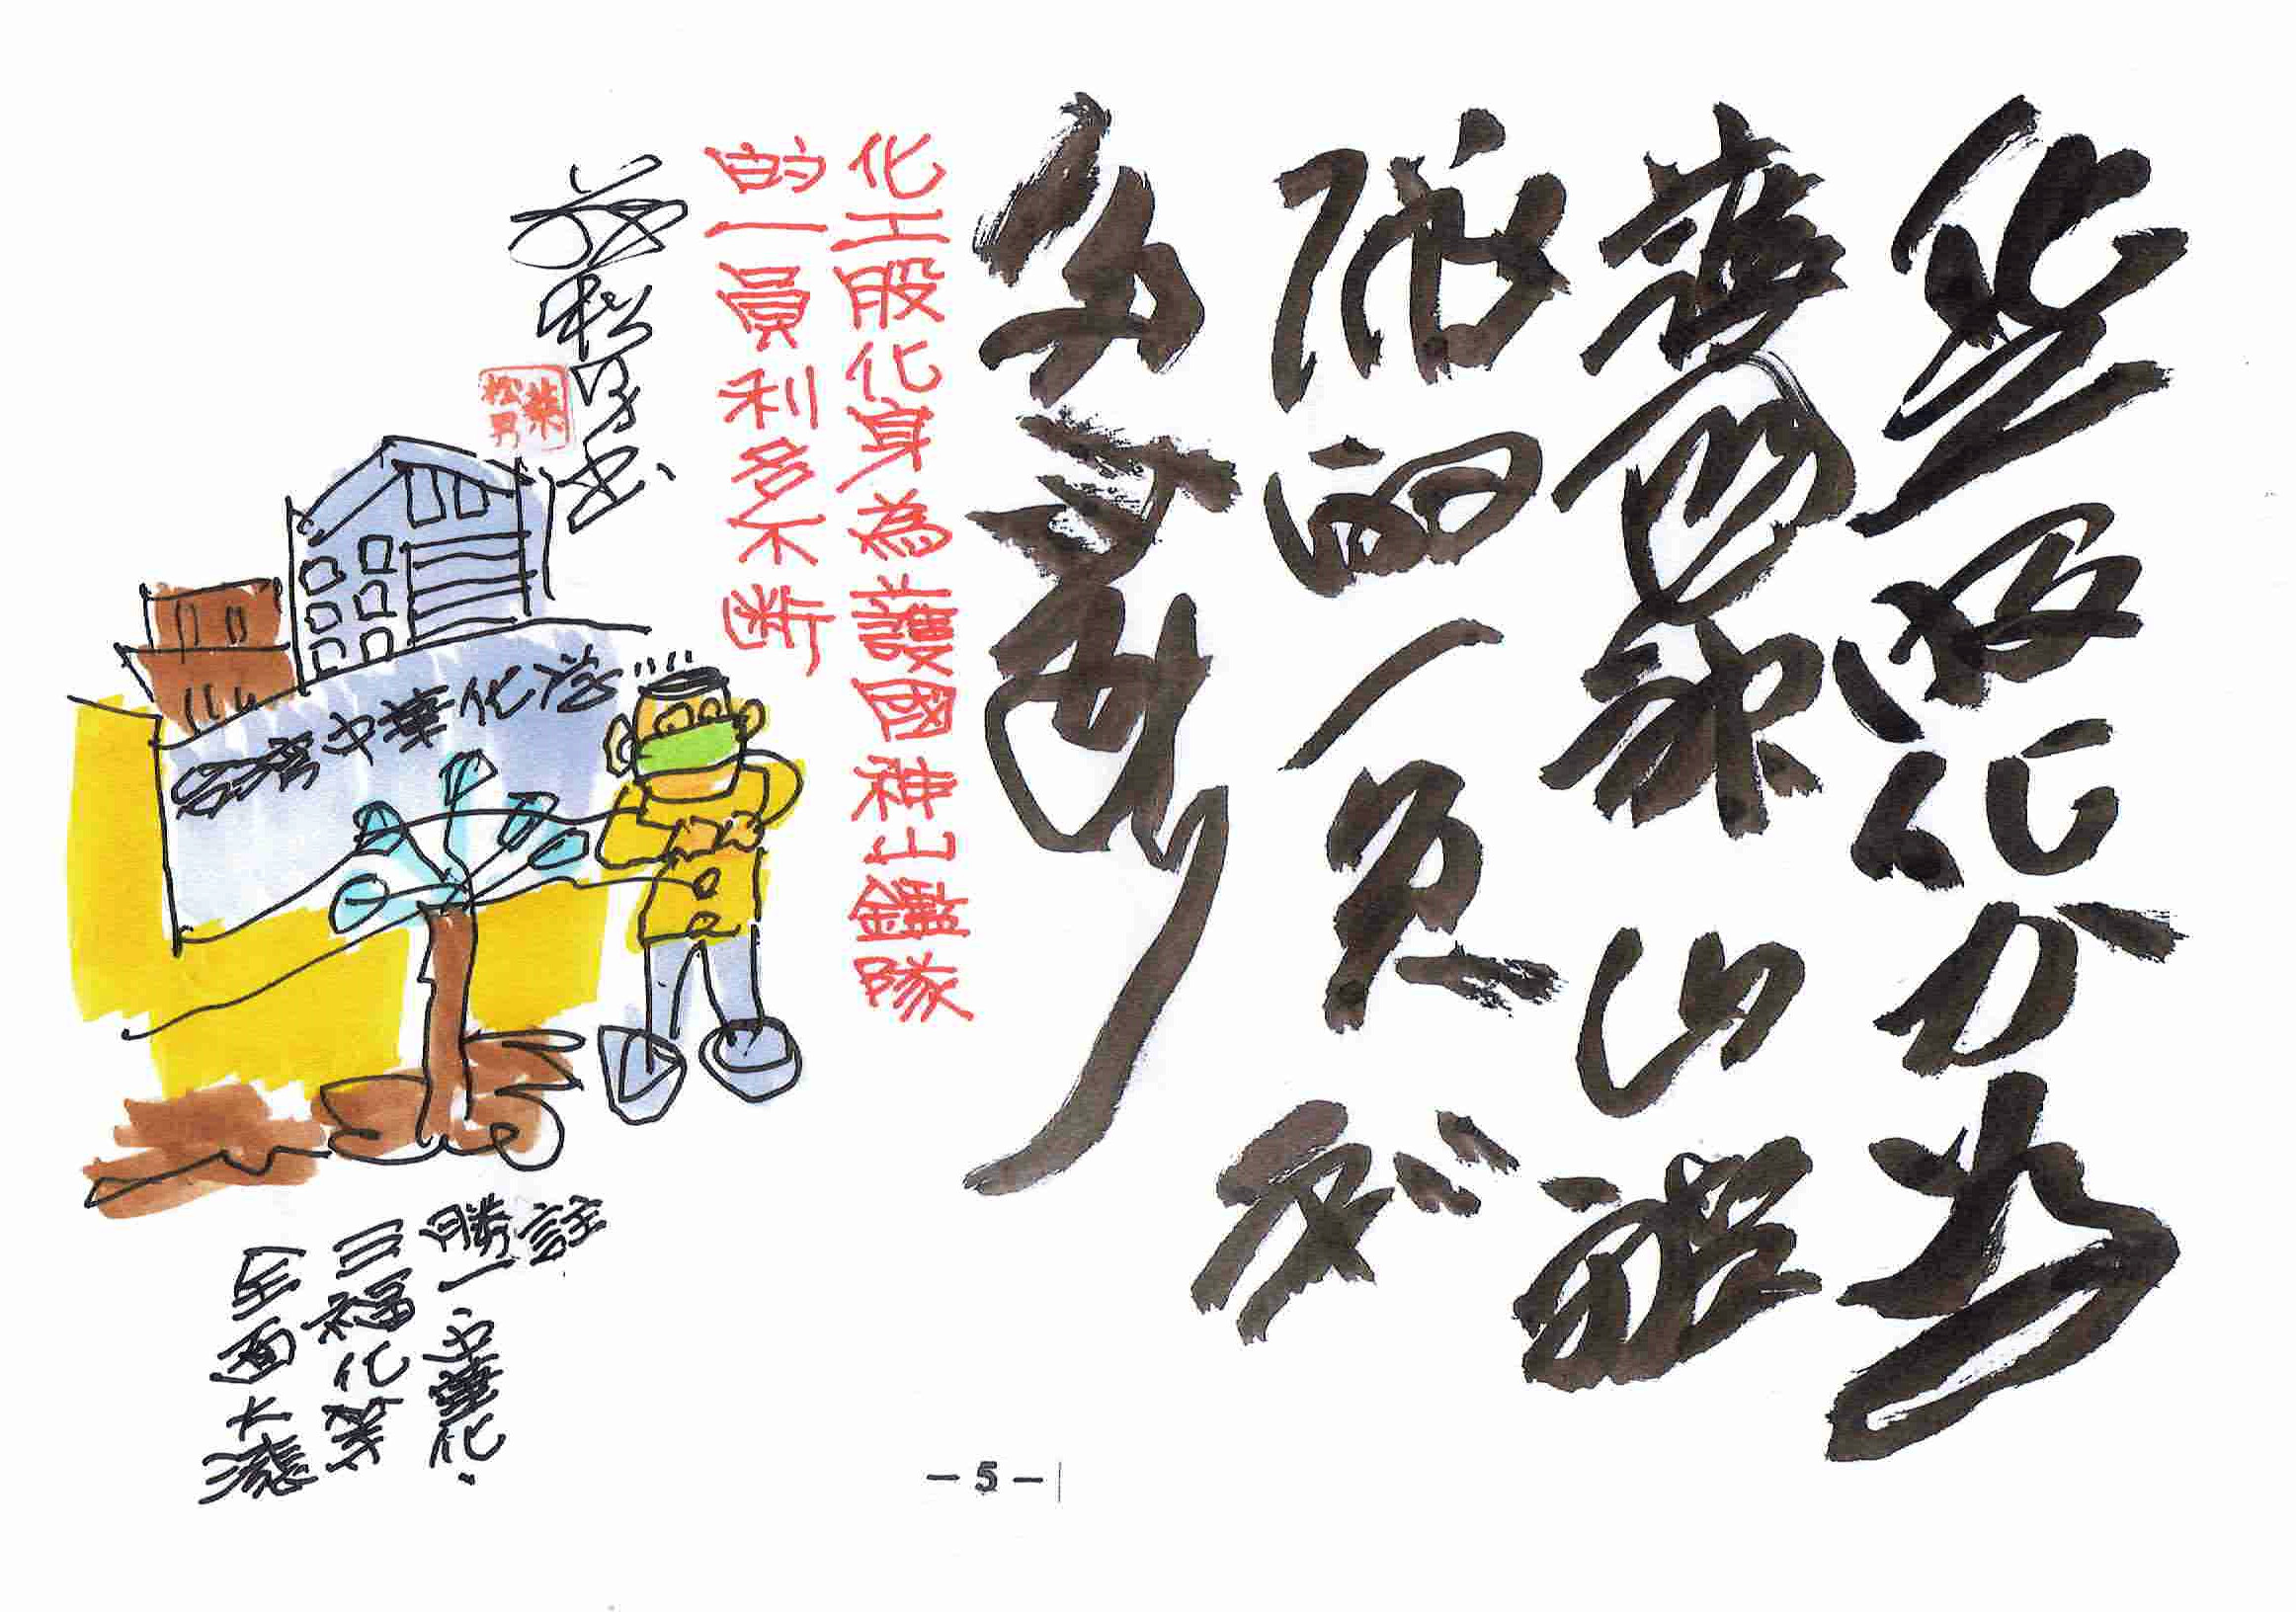 化工股化身為
護國神山鑑
隊的一員利
多不斷
化工股化身為護國神山鑑隊
的一員利多不斷
葉松男書
葉
松男
台灣中華化学
註
勝一、中華化、
三福化等
全面大漲
- 5 -